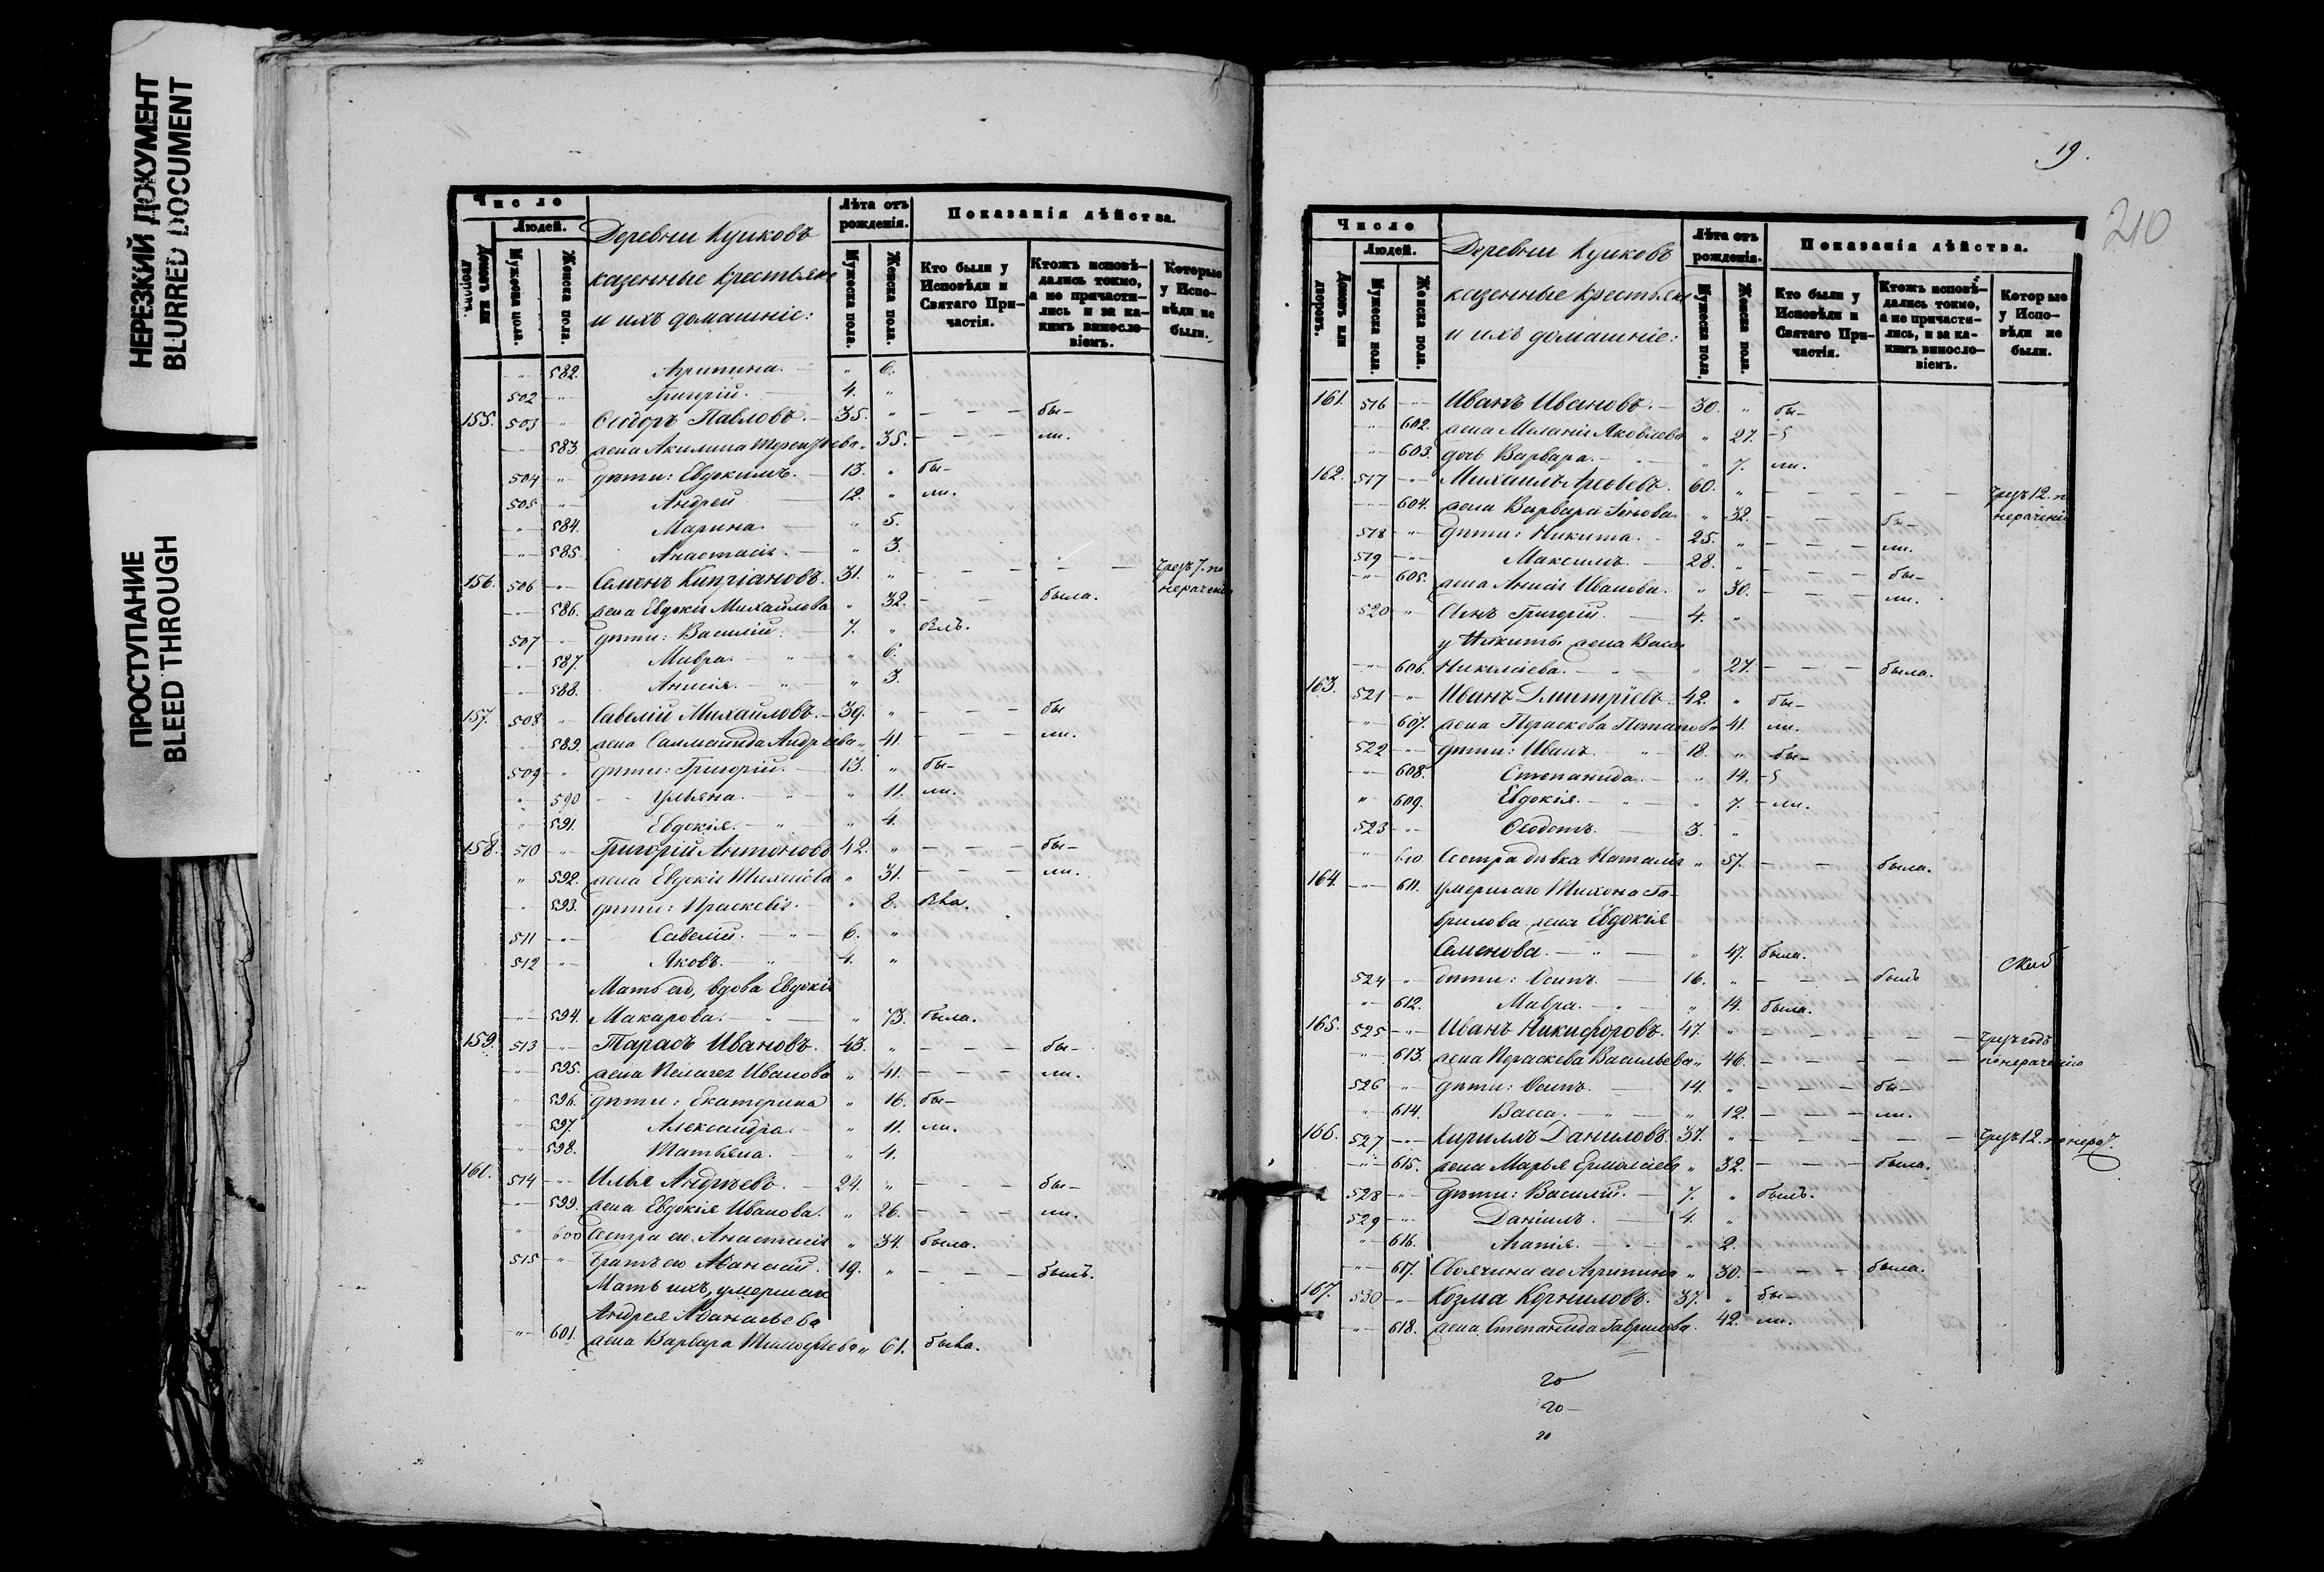 НЕРЕЗКИЙ ДОКУМЕНТ
BLURRED DOCUMENT
ПРОСТУПАНИЕ
BLEED THROUGH
Число
Людей.
Домовъ или дворовъ.
Мужеска пола.
Женска пола.
Деревни Куцковъ
казенные крестьяне
и ихъ домашніе:
Лѣта отъ рожденія.
Мужеска пола.
Женска пола.
Показанія дѣйства.
Кто были у Исповѣди и Святаго Причастія.
Ктожъ исповѣдались токмо, а не причастились и за какимъ винословіемъ.
Которые у Исповѣди не были.
" 582. Агрипина. " 6.
502 " Григорій. 4. "
155. 503 " Ѳеодоръ Павловъ. 35. " – – – бы–
" 583 жена Акилина Терентьева " 35. – – – ли.
504 " дѣти: Евдокимъ. 13. " бы–
505 " Андрей 12. " ли.
" 584. Марина. " 5.
" 585. Анастасія. " 3.
156. 506 " Семенъ Кипріановъ. 31. " – – – – – чрез 7. по нерачению
" 586. жена Евдокія Михайлова " 32. – – была.
507 " дѣти: Василій. 7. " былъ.
" 587. Мавра. " " 6.
" 588. Анисія. " " 3.
157. 508 " Савелій Михайловъ. 39. " – – – бы
" 589. жена Саломанида Андреева " 41. – – – ли.
509 " дѣти: Григорій. 13. " бы–
" 590 Ульяна. " " 11. ли.
" 591. Евдокія. " " 4.
158. 510 " Григорій Антоновъ 42. " – – – бы–
" 592. жена Евдокія Тихонова " 31. – – – ли.
" 593. дѣти: Праскевія. " 8. была.
511 " Савелій. " 6. "
512 " Яковъ. " 4. "
Мать его, вдова Евдокія
" 594. Макарова. " " 73. была.
159. 513 " Тарасъ Ивановъ. 43. " – – – бы–
" 595. жена Пелагея Иванова " 41. – – – ли.
" 596. дѣти: Екатерина " 16. бы–
" 597. Александра. " 11. ли.
" 598. Татьяна. " 4.
160. 514 " Илья Андреевъ. 24. " – – – бы–
" 599. жена Евдокія Иванова. " 26. – – – ли.
" 600 Сестра его Анастасія " 34. была.
515 " братъ его Аѳанасій. 19. " – – – былъ.
Мать ихъ, умершаго
Андрея Аѳанасьева
" 601. жена Варвара Тимофеева " 61. была.
19.
210
Число
Людей.
Домовъ или дворовъ.
Мужеска пола.
Женска пола.
Деревни Куцковъ
казенные крестьяне
и ихъ домашніе:
Лѣта отъ рожденія.
Мужеска пола.
Женска пола.
Показанія дѣйства.
Кто были у Исповѣди и Святаго Причастія.
Ктожъ исповѣдались токмо, а не причастились, и за какимъ винословіемъ.
Которые у Исповѣди не были.
161. 516 " Иванъ Ивановъ. 30. " бы–
" 602. жена Меланія Яковлева " 27. –
" 603. дочь Варвара. " " 7. ли.
162. 517 " Михаилъ 60. " – – – – – чрез 12. п
" 604. жена Варвара " 32. – – бы– нерачению
518 " дѣти: Никита. 25. " – – – ли.
519 " Максимъ. 28. " – – – бы–
" 605. жена Анисія Иванова. " 30. – – – ли.
520 " Сынъ Григорій. 4. "
у Никиты жена Васса
" 606. Николаева. " " 27. – – – была.
163. 521 " Иванъ Дмитріевъ. 42. " бы–
" 607. жена Параскева Потапова 41. ли.
522 " дѣти: Иванъ. " 18. " бы–
" 608. Степанида. " 14. –
" 609. Евдокія. " " 7. – ли.
523 " Ѳеодотъ. 3. "
" 610 Сестра дѣвка Наталія " 57. – – была.
164. " 611. умершаго Тихона Гаврилова жена Евдокія
Семенова. " " 47. была.
524 " дѣти: Осипъ. 16. " – – – былъ
" 612. Мавра. " " 14. была.
165. 525 " Иванъ Никифоровъ. 47. " – – – – – чрез годъ
" 613. жена Параскева Васильева " 46. – – – – – по нерачению
526 " дѣти: Осипъ. 14. " – – – бы–
" 614. Васса. " " 12. – – – ли.
166. 527 " Кирилъ Даниловъ. 37. " – – – – – чрез 12. по нерач.
" 615. жена Марья Ермолаева " 32. – – – была.
528 " дѣти: Василій. 7. " былъ.
529 " Даніилъ. 4. "
" 616. Агапія. " " 2.
" 617. Своячина его Агрипина " 30. – – – была.
167. 530 " Козма Корниловъ. 37. " бы–
" 618. жена Степанида Гаврилова. 42. ли.
20
20 –
20